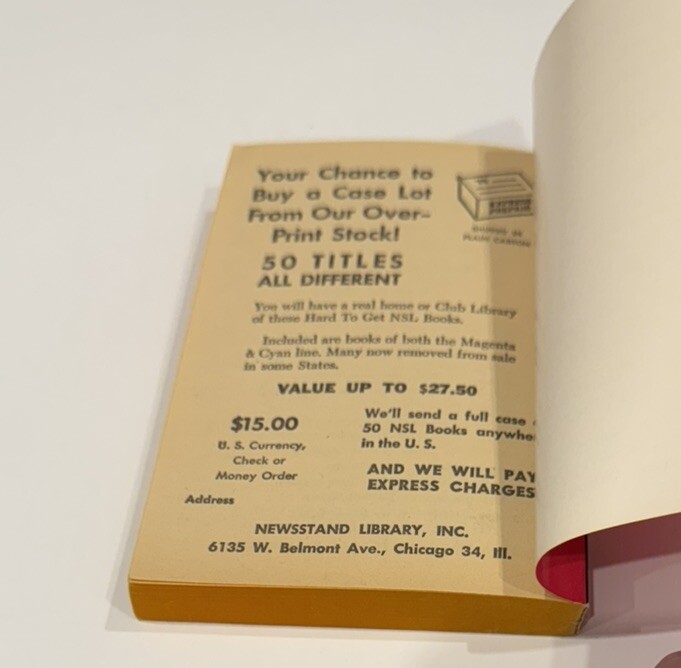 Your Chance to
Buy a Case Lot
From Our Over-
Print Stock!
50 TITLES
ALL DIFFERENT
EXPRESS
PREPAID
PLAIN CARTON
You will have a real home or Club Library
of these Hard To Get NSL Books.
Included are books of both the Magenta
& Cyan line. Many now removed from sale
in some States.
VALUE UP TO $27.50
$15.00
U. S. Currency,
Check or
Money Order
We'll send a full case
50 NSL Books anywhe
in the U. S.
AND WE WILL PAY
EXPRESS CHARGES
Address
NEWSSTAND LIBRARY, INC.
6135 W. Belmont Ave., Chicago 34, Ill.